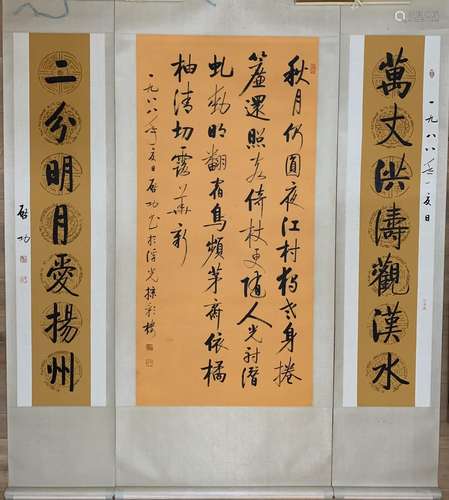 萬丈洪濤觀漢水
一九八八年夏日
秋月仍圓夜江村獨老身捲
簾還照客倚杖更隨人光射潛
虬動明翻宿鳥頻茅齋依橘
柚清切露華新
一九八八年夏日啟功書於浮光掠影樓
二分明月愛揚州
啟功